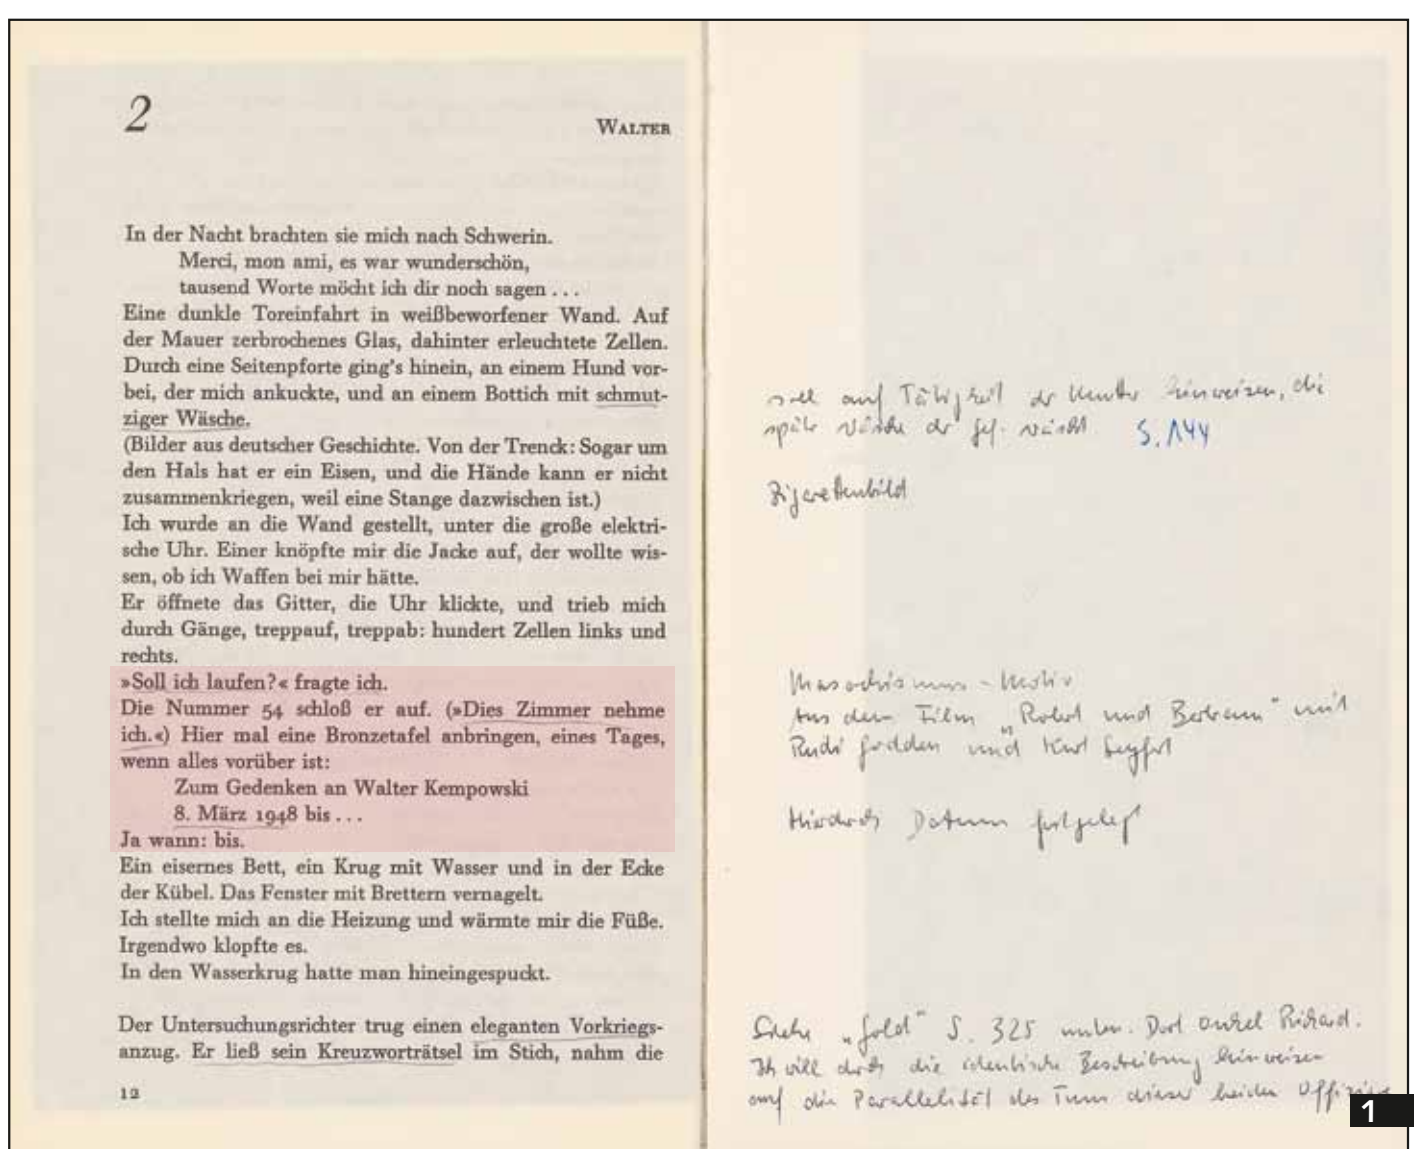 2
WALTER
In der Nacht brachten sie mich nach Schwerin.
Merci, mon ami, es war wunderschön,
tausend Worte möcht ich dir noch sagen . . .
Eine dunkle Toreinfahrt in weißbeworfener Wand. Auf
der Mauer zerbrochenes Glas, dahinter erleuchtete Zellen.
Durch eine Seitenpforte ging's hinein, an einem Hund vor-
bei, der mich ankuckte, und an einem Bottich mit schmut-
ziger Wäsche.
(Bilder aus deutscher Geschichte. Von der Trenck: Sogar um
den Hals hat er ein Eisen, und die Hände kann er nicht
zusammenkriegen, weil eine Stange dazwischen ist.)
Ich wurde an die Wand gestellt, unter die große elektri-
sche Uhr. Einer knöpfte mir die Jacke auf, der wollte wis-
sen, ob ich Waffen bei mir hätte.
Er öffnete das Gitter, die Uhr klickte, und trieb mich
durch Gänge, treppauf, treppab: hundert Zellen links und
rechts.
»Soll ich laufen?« fragte ich.
Die Nummer 54 schloß er auf. (»Dies Zimmer nehme
ich.«) Hier mal eine Bronzetafel anbringen, eines Tages,
wenn alles vorüber ist:
Zum Gedenken an Walter Kempowski
8. März 1948 bis . . .
Ja wann: bis.
Ein eisernes Bett, ein Krug mit Wasser und in der Ecke
der Kübel. Das Fenster mit Brettern vernagelt.
Ich stellte mich an die Heizung und wärmte mir die Füße.
Irgendwo klopfte es.
In den Wasserkrug hatte man hineingespuckt.
Der Untersuchungsrichter trug einen eleganten Vorkriegs-
anzug. Er ließ sein Kreuzworträtsel im Stich, nahm die
12
soll auf Tätigkeit der Mutter hinweisen, die
später Wäsche der Gef. wäscht S. 144
Zigarettenbild
Masochismus-Motiv
Aus dem Film „Robert und Bertram" mit
Rudi Godden und Kurt Seyfert
Hierdurch Datum festgelegt
Siehe „Gold" S. 325 unten. Dort Onkel Richard.
Ich will durch die identische Beschreibung hinweisen
auf die Parallelität des Tuns dieser beiden
1